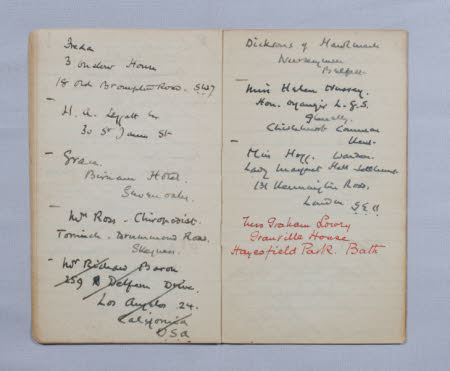 Freda
3 Onslow House
18 Old Brompton Road. S.W.7
H. A. Leggatt Esq
30 St James St
Grace
Birnam Hotel.
Sevenoaks.
Mr Ross - Chiropodist.
Torrinch. Drummond Road.
Skegness.
Mr Richard Baron
259 Delfern Drive.
Los Angeles 24.
California
U.S.A
Dicksons of Hawlmark
Nurserymen
Belfast.
Miss Helen Hussey.
Hon. L.G.S.
Chislehurst Common
Kent.
Miss Hogg. Warden.
Lady Margaret Hall Settlement
131 Kennington Road,
London S.E.11
Miss Graham Lowry
Granville House
Hayesfield Park. Bath